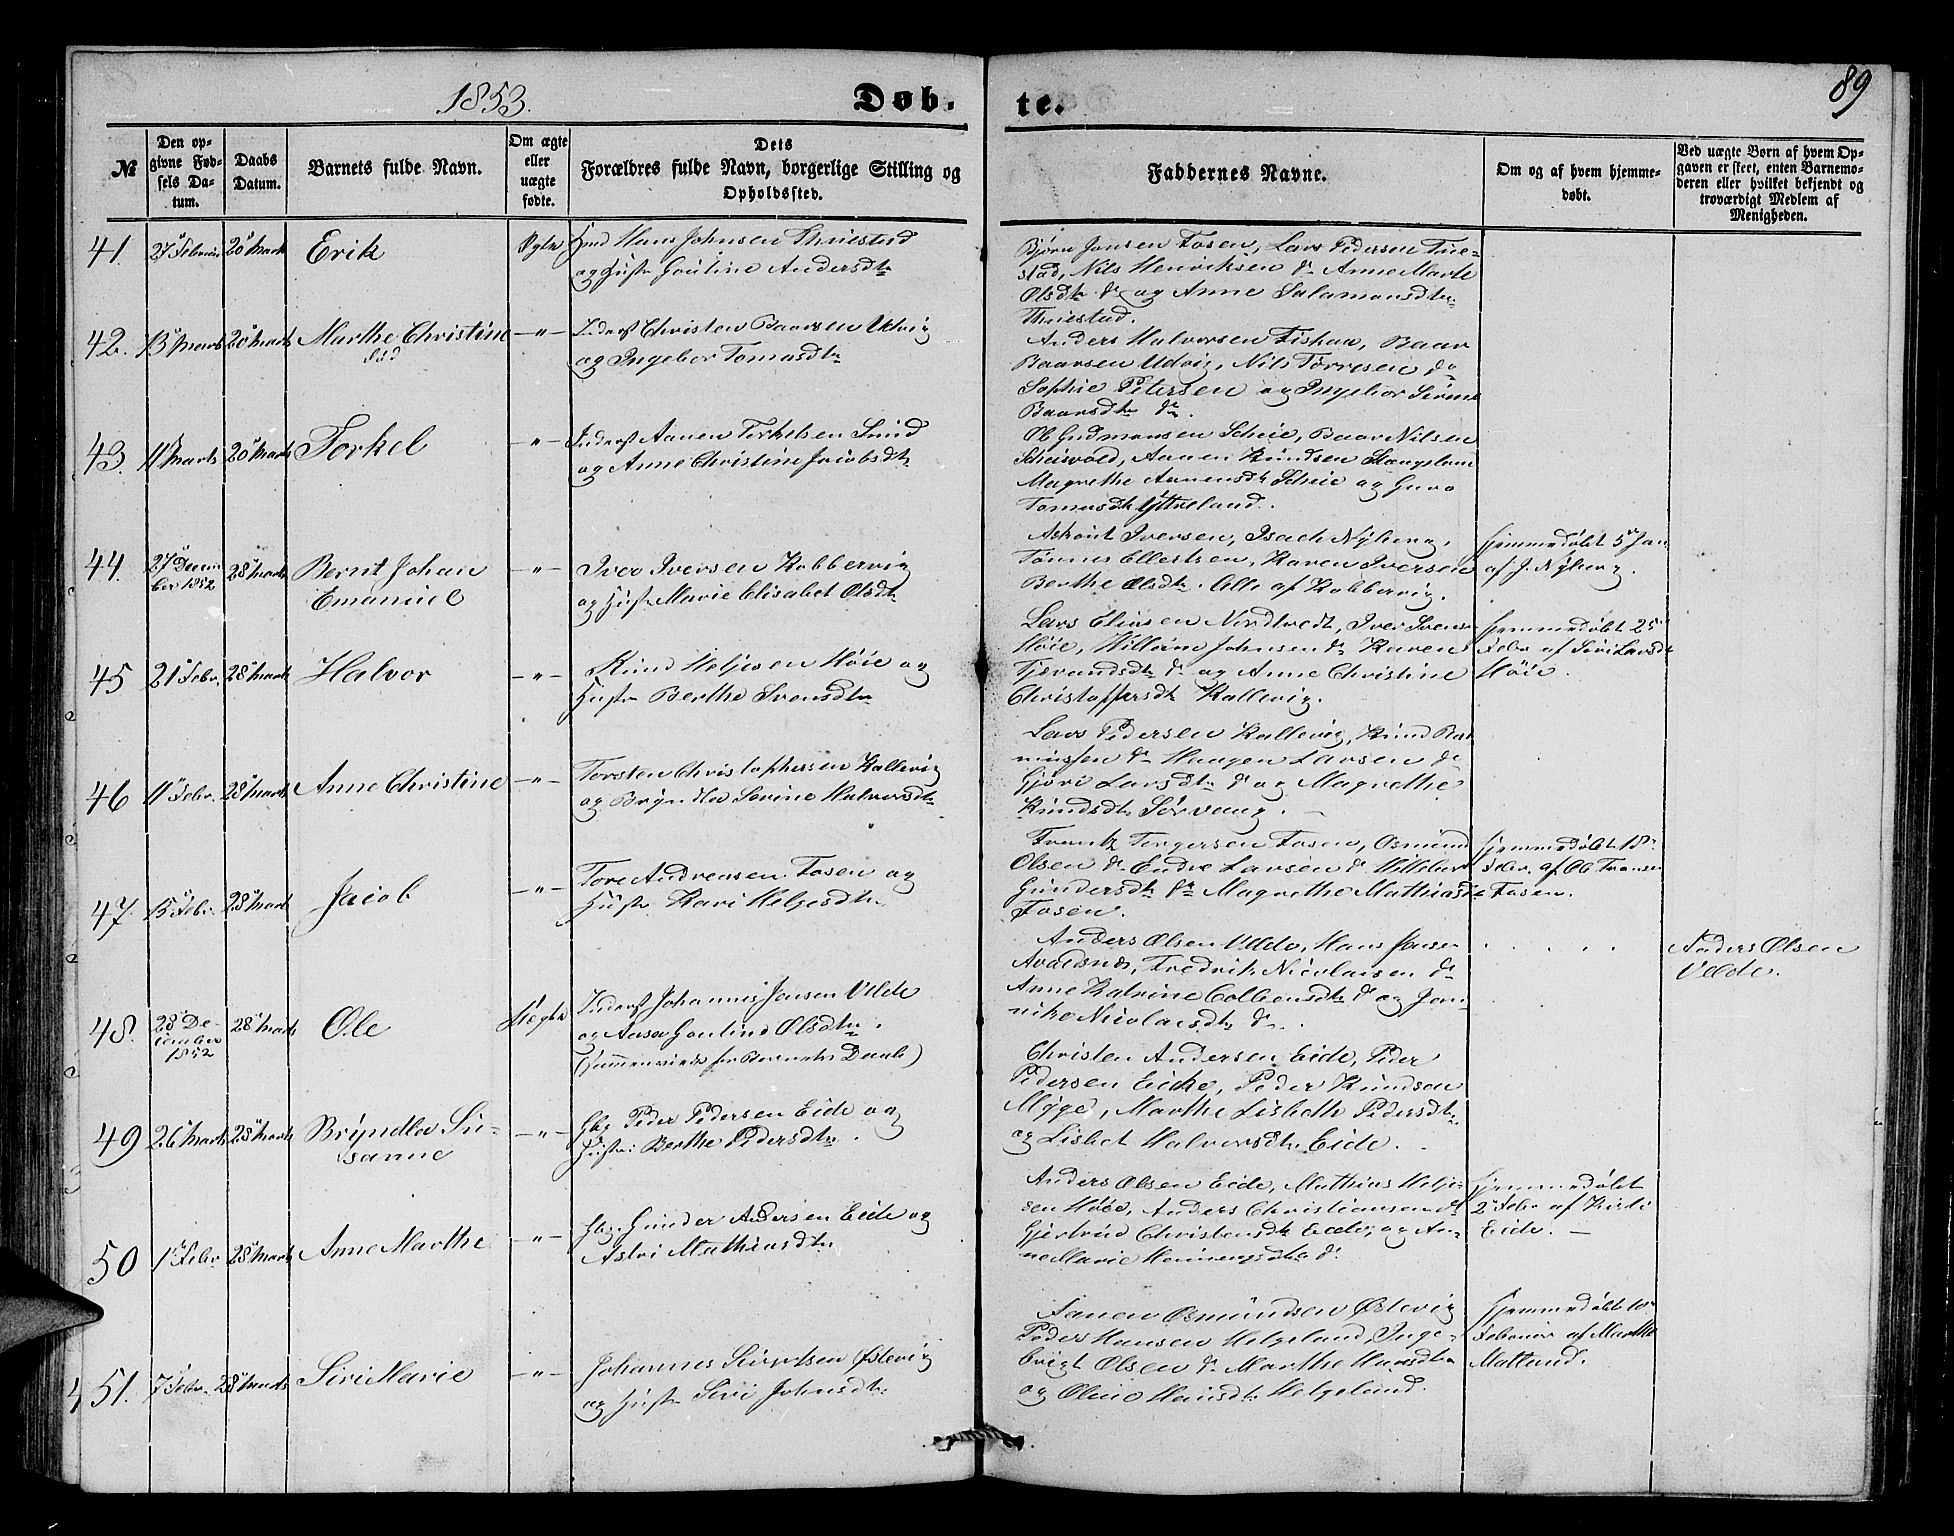 1853.
Døb.
te.
89
№
Den op-
givne Fød-
sels Da-
tum.
Daabs
Datum.
Barnets fulde Navn.
Om ægte
eller
uægte
fødte.
Dets
Forældres fulde Navn, borgerlige Stilling og
Opholdssted.
Faddernes Navne.
Om og af hvem hjemme-
døbt.
Ved uægte Børn af hvem Op-
gaven er skeet, enten Barnemo-
deren eller hvilket bekjendt og
troværdigt Medlem af
Menigheden.
41.
20 Marts
Erik
Hans Johnsen
og Hustr Goutine Andersdtr
Bjørn Jansen Fosen, Lars Pedersen Tue-
stad, Nils Henriksen do Anne Marte
Olsdtr do og Anne Salamonsdtr
42.
13 Marts
20 Marts
Marthe Christine
—"—
Inderst Christen Baarsen Udvig
og Ingebor Tomasdtr
Anders Halvorsen Fiskaa, Baar
Baarsen Udvig, Nils Tørresen do
Sophie Petersen og Ingebor Serine
Baarsdtr do.
43.
11 Marts
20 Marts
Torkel
—"—
Inderst Aanen Torkelsen
og Anne Christine Jacobsdtr
Ole Gudmonsen Scheie, Baar Nilsen
Aanen Knudsen
Magrethe Aanensdtr Scheie og Guro
Tomasdtr Ytreland.
44.
27 Decem
ber 1852
28 Marts
Bernt Johan
Emanuel
—"—
Iver Iversen Kobbervig
og Hustr Marie Elisabet Olsdtr
Iversen, Isach Nyberg,
Tønnes Ellertsen, Karen Iversen
Berthe Olsdtr. Alle af Kobbervig.
Hjemmedøbt 5 Jan
af J. Nyberg.
45
21 Febr.
28 Marts
Halvor
—"—
Knud Heljesen Høie og
Hustr Berthe Svensdtr
Lars Eliasen Iver Svens
Høie, Willum Johnsen do Karen
Tjerandsdtr do og Anne Christine
Christophersdtr Kallevig.
Hjemmedøbt 25
Febr af Siri Larsdt
Høie.
46
11 Febr.
28 Marts
Anne Christine
—"—
Torsten Christophersen Kallevig
og Bryndla Serine Halvorsdtr
Lars Pedersen Kallevig, Knud Ras
mussen do Haagen Larsen do
Gjøri Larsdtr do og Magrethe
Knudsdtr Sørvaag.
47.
15 Febr.
28 Marts
Jacob
—"—
Tore Andreasen Fosen og
Hustr Kari Helgesdtr
Frantz Torgersen Fosen, Osmund
Olsen do Endre Larsen do
Gundersdtr do Magrethe Mathiasdt
Fosen.
Hjemmedøbt 18
Febr. af Ole Fransen
Fosen.
48.
28 De-
cember
1852
28 Marts
Ole
Uægte
Inderst Johannes Jensen Velde
og Aasa Goulina Olsdtr.
(Sammenviede før Barnets Daab)
Anders Olsen Velde, Hans Jansen
Avaldsnæs, Fredrik Nicolaisen do
Anne Katrine Colbensdtr do og Jan-
nike Nicolaisdtr do.
Anders Olsen
Velde.
49
26 Marts
28 Marts
Bryndla Su-
sanne
—"—
Gbr Peder Pedersen Eide og
Hustr: Berthe Pedersdtr.
Christen Andersen Eide, Peder
Pedersen Eicke, Peder Knudsen
Myge, Marthe Lisbeth Pedersdtr
og Lisbet Halvorsdtr Eide.
50
1 Febr
28 Marts
Anne Marthe
—"—
Gbr. Gunder Andersen Eide og
Astri Mathiasdtr
Anders Olsen Eide, Mathias Helje-
sen Høie, Anders Christiansen do
Gjertrud Christensdtr Eide, og An-
ne Marie Henningsdtr do
Hjemmedøbt
2 Febr af Kirsti
Eide. —
51.
7 Febr.
28 Marts
Siri Marie
—"—
Johannes Sivertsen Østevig
og Hustr Siri Johnsdtr
Aanen Osmundsen Østevig
Peder Hansen Helgeland, Inge-
brigt Olsen do Marthe Hansdtr
og Oline Hansdtr Helgeland.
Hjemmedøbt 10
Februar af Marthe
Matland.